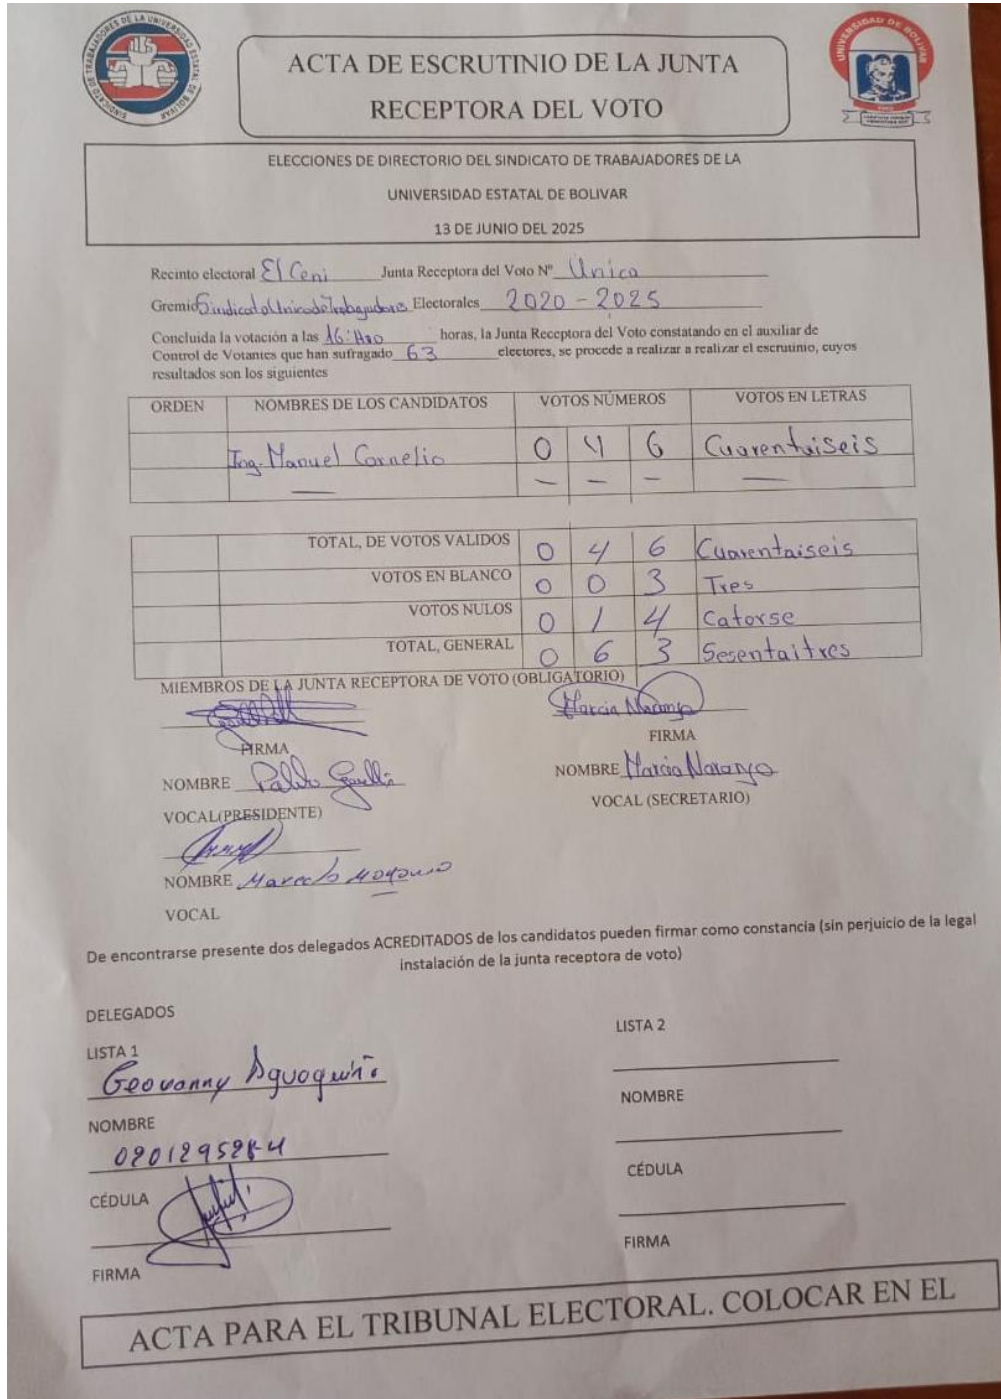 SINDICATO DE TRABAJADORES DE LA UNIVERSIDAD ESTATAL DE BOLIVAR
UNIVERSIDAD DE BOLIVAR
ACTA DE ESCRUTINIO DE LA JUNTA
RECEPTORA DEL VOTO
ELECCIONES DE DIRECTORIO DEL SINDICATO DE TRABAJADORES DE LA
UNIVERSIDAD ESTATAL DE BOLIVAR
13 DE JUNIO DEL 2025
Recinto electoral El Ceni Junta Receptora del Voto Nº Unica
Gremio Sindicato Unico de Trabajadores Electorales 2020 - 2025
Concluida la votación a las horas, la Junta Receptora del Voto constatando en el auxiliar de
Control de Votantes que han sufragado 63 electores, se procede a realizar a realizar el escrutinio, cuyos
resultados son los siguientes
ORDEN NOMBRES DE LOS CANDIDATOS VOTOS NÚMEROS VOTOS EN LETRAS
Ing. Manuel Cornelio 0 4 6 Cuarentaiseis
— — — — —
TOTAL, DE VOTOS VALIDOS 0 4 6 Cuarentaiseis
VOTOS EN BLANCO 0 0 3 Tres
VOTOS NULOS 0 1 4 Catorse
TOTAL, GENERAL 0 6 3 Sesentaitres
MIEMBROS DE LA JUNTA RECEPTORA DE VOTO (OBLIGATORIO)
Marcia Naranjo
FIRMA FIRMA
NOMBRE Pablo NOMBRE Marcia Naranjo
VOCAL(PRESIDENTE) VOCAL (SECRETARIO)
NOMBRE Marcelo
VOCAL
De encontrarse presente dos delegados ACREDITADOS de los candidatos pueden firmar como constancia (sin perjuicio de la legal
instalación de la junta receptora de voto)
DELEGADOS
LISTA 1 LISTA 2
Geovanny
NOMBRE NOMBRE
020129528-4
CÉDULA CÉDULA
FIRMA FIRMA
ACTA PARA EL TRIBUNAL ELECTORAL. COLOCAR EN EL